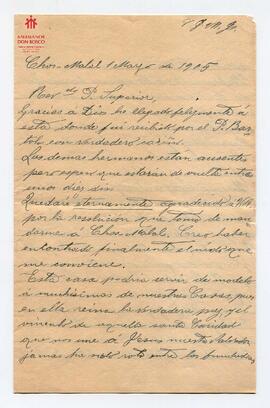 AMBIENTES
DON BOSCO
V. J. M. J.
Chos-Malal 1 Mayo de 1905
Rev.do P. Superior,
Gracias a Dios he llegado felizmente á
esta donde fui recibido por el P. Bar
tolo con verdadero cariño.
Los demas hermanos están ausentes,
pero espero que estarán de vuelta entre
unos diez dias.
Quedaré eternamente agradecido á
por la resolucion que tomó de man
darme á Chos Malal. Creo haber
encontrado finalmente el nido que
me conviene.
Esta casa podria servir de modelo
á muchísimas de nuestras Casas, pues
en ella reina la verdadera paz, y el
vínculo de aquella santa Caridad
que nos une á Jesús nuestro Salvador
jamás ha sido roto entre los